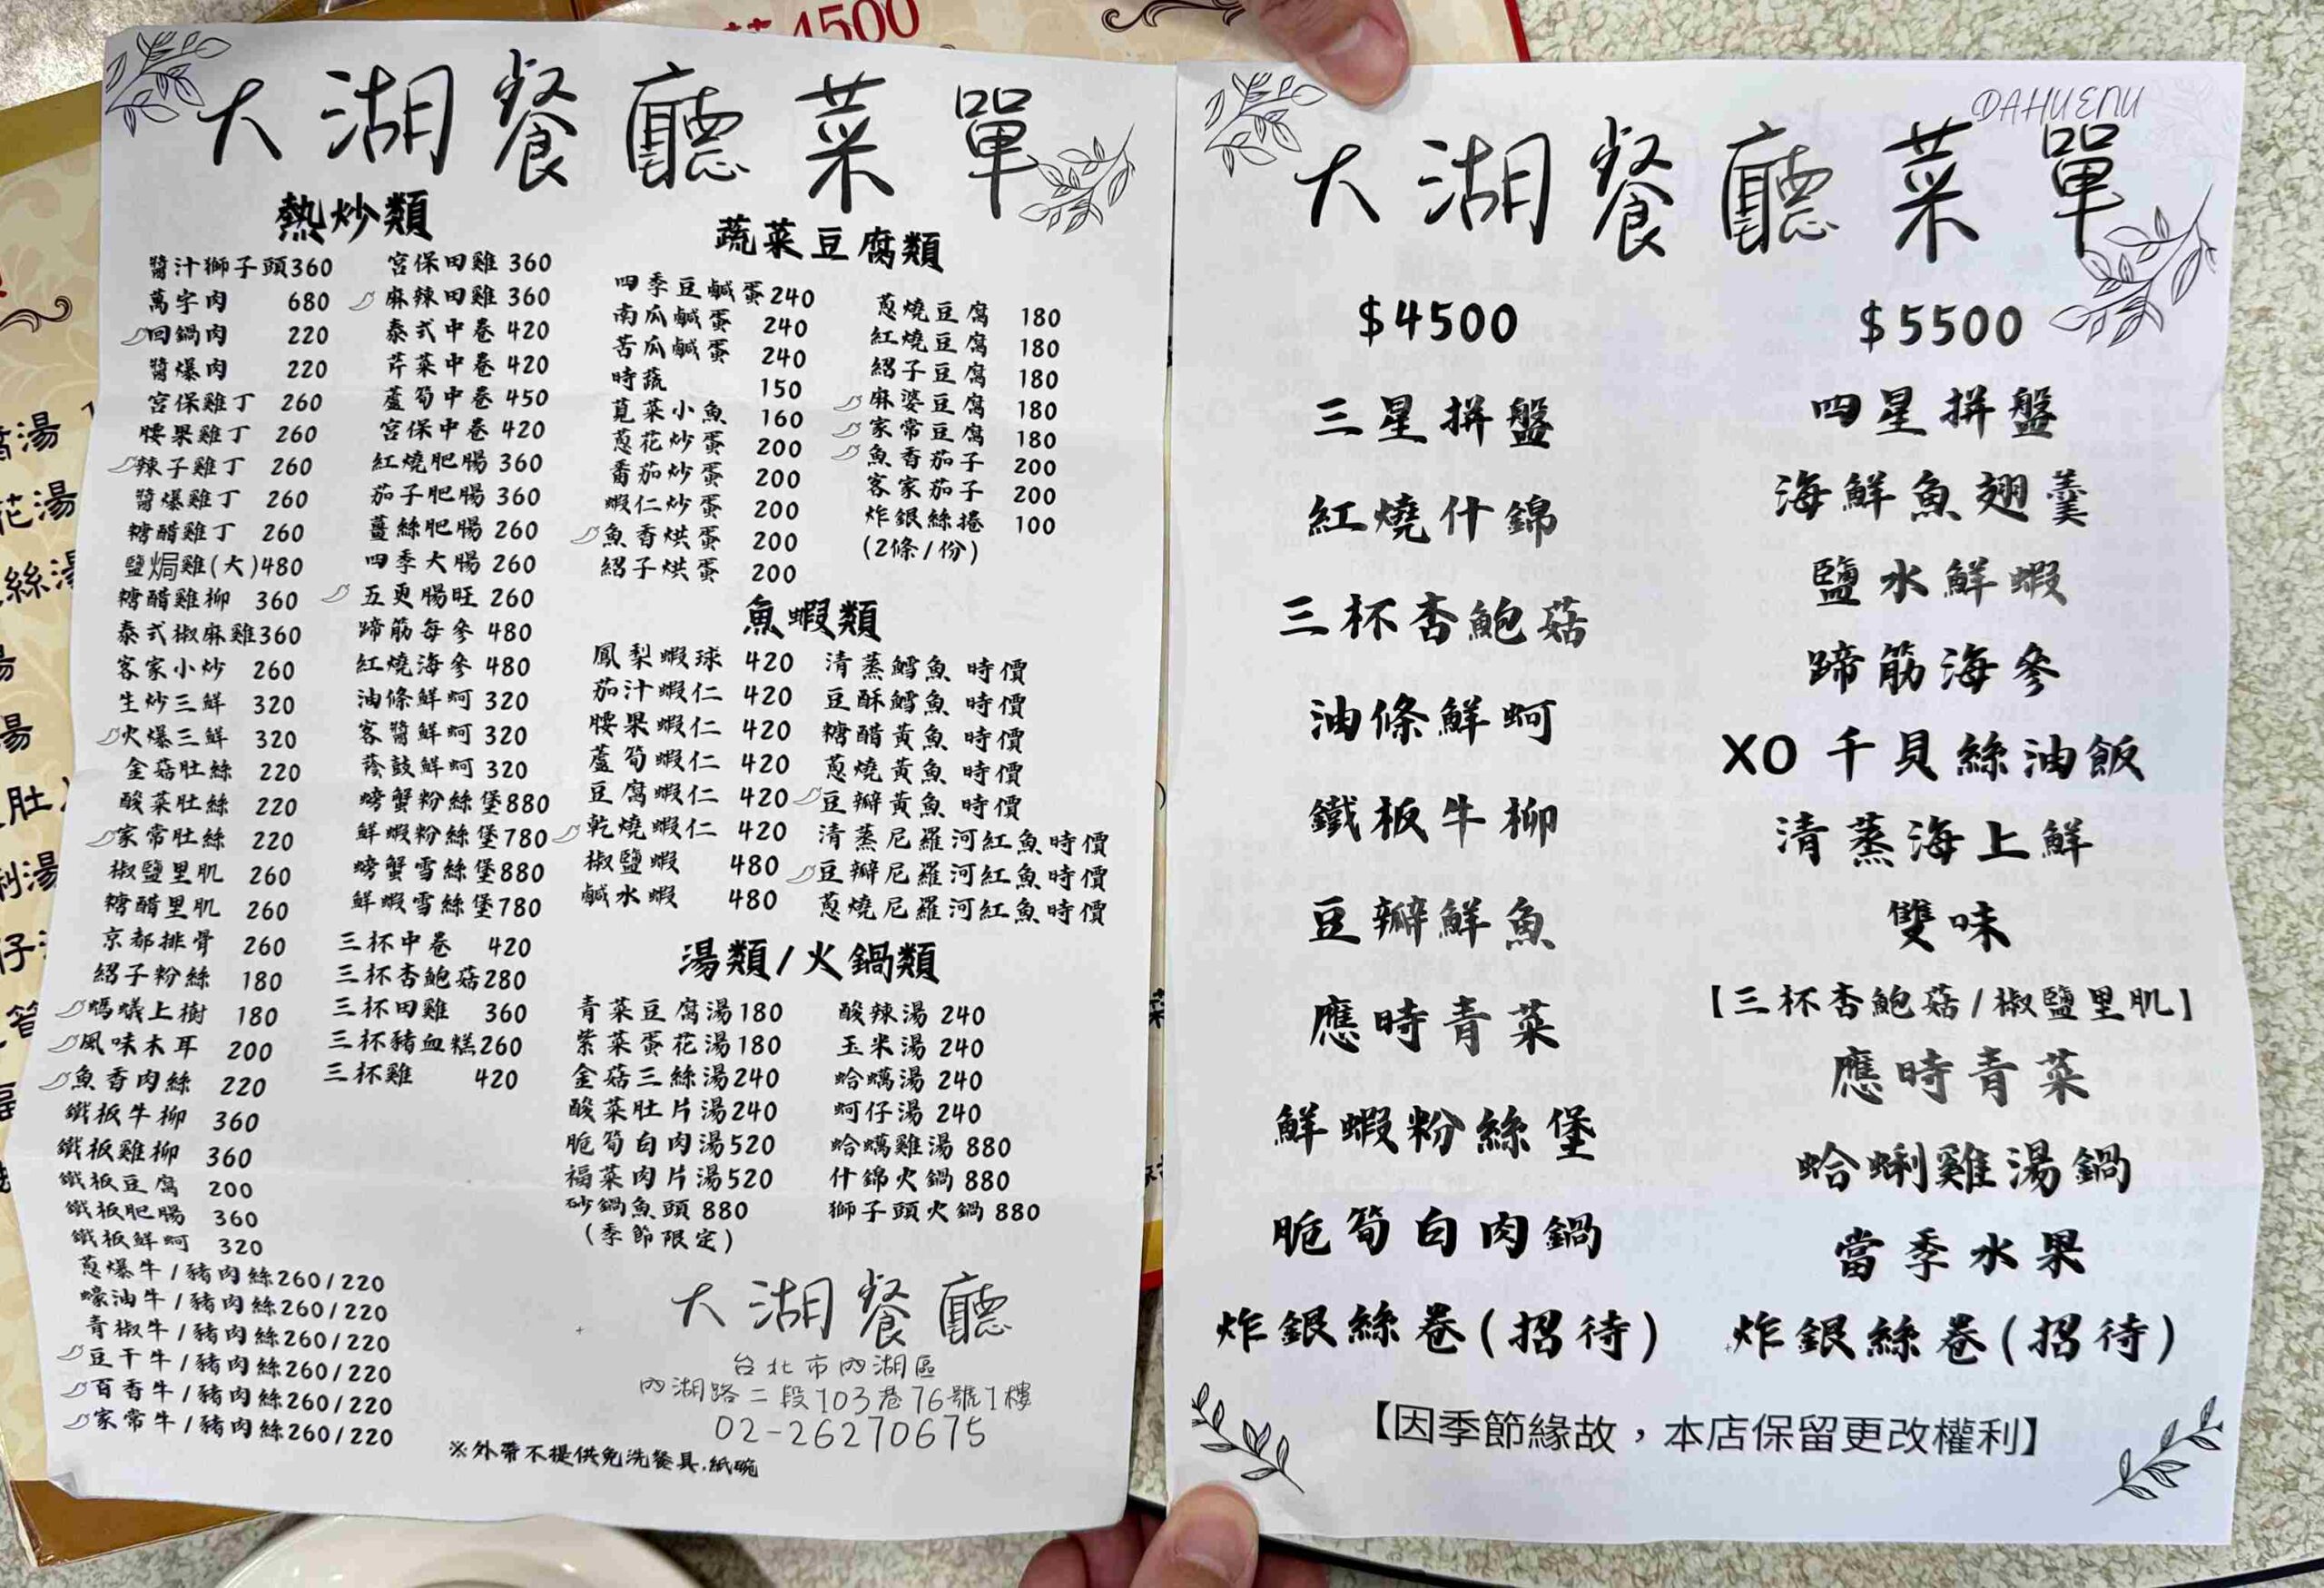 大湖餐廳菜單
熱炒類
醬汁獅子頭360
萬字肉 680
回鍋肉 220
醬爆肉 220
宮保雞丁 260
腰果雞丁 260
辣子雞丁 260
醬爆雞丁 260
糖醋雞丁 260
鹽焗雞(大)480
糖醋雞柳 360
泰式椒麻雞360
客家小炒 260
生炒三鮮 320
火爆三鮮 320
金菇肚絲 220
酸菜肚絲 220
家常肚絲 220
椒鹽里肌 260
糖醋里肌 260
京都排骨 260
紹子粉絲 180
螞蟻上樹 180
風味木耳 200
魚香肉絲 220
鐵板牛柳 360
鐵板雞柳 360
鐵板豆腐 200
鐵板肥腸 360
鐵板鮮蚵 320
蔥爆牛/豬肉絲260/220
蠔油牛/豬肉絲260/220
青椒牛/豬肉絲260/220
豆干牛/豬肉絲260/220
百香牛/豬肉絲260/220
家常牛/豬肉絲260/220
宮保田雞 360
麻辣田雞 360
泰式中卷 420
芹菜中卷 420
蘆筍中卷 450
宮保中卷 420
紅燒肥腸 360
茄子肥腸 360
薑絲肥腸 260
四季大腸 260
五更腸旺 260
蹄筋每參 480
紅燒海參 480
油條鮮蚵 320
客醬鮮蚵 320
蔭鼓鮮蚵 320
螃蟹粉絲堡880
鮮蝦粉絲堡780
螃蟹雪絲堡880
鮮蝦雪絲堡780
三杯中卷 420
三杯杏鮑菇280
三杯田雞 360
三杯豬血糕260
三杯雞 420
蔬菜豆腐類
四季豆鹹蛋240
南瓜鹹蛋 240
苦瓜鹹蛋 240
時蔬 150
莧菜小魚 160
蔥花炒蛋 200
番茄炒蛋 200
蝦仁炒蛋 200
魚香烘蛋 200
紹子烘蛋 200
蔥燒豆腐 180
紅燒豆腐 180
紹子豆腐 180
麻婆豆腐 180
家常豆腐 180
魚香茄子 200
客家茄子 200
炸銀絲捲 100
(2條/份)
魚蝦類
鳳梨蝦球 420
茄汁蝦仁 420
腰果蝦仁 420
蘆筍蝦仁 420
豆腐蝦仁 420
乾燒蝦仁 420
椒鹽蝦 480
鹹水蝦 480
清蒸鱈魚 時價
豆酥鱈魚 時價
糖醋黃魚 時價
蔥燒黃魚 時價
豆瓣黃魚 時價
清蒸尼羅河紅魚時價
豆瓣尼羅河紅魚時價
蔥燒尼羅河紅魚時價
湯類/火鍋類
青菜豆腐湯180
紫菜蛋花湯180
金菇三絲湯240
酸菜肚片湯240
脆筍白肉湯520
福菜肉片湯520
砂鍋魚頭 880
(季節限定)
酸辣湯 240
玉米湯 240
蛤蠣湯 240
蚵仔湯 240
蛤蠣雞湯 880
什錦火鍋 880
獅子頭火鍋 880
大湖餐廳
台北市內湖區
內湖路二段103巷76號1樓
02-26270675
※外帶不提供免洗餐具.紙碗
DAHUENU
大湖餐廳菜單
$4500
三星拼盤
紅燒什錦
三杯杏鮑菇
油條鮮蚵
鐵板牛柳
豆瓣鮮魚
應時青菜
鮮蝦粉絲堡
脆筍白肉鍋
炸銀絲卷(招待)
$5500
四星拼盤
海鮮魚翅羹
鹽水鮮蝦
蹄筋海參
XO干貝絲油飯
清蒸海上鮮
雙味
【三杯杏鮑菇/椒鹽里肌】
應時青菜
蛤蜊雞湯鍋
當季水果
炸銀絲卷(招待)
【因季節緣故,本店保留更改權利】
4500